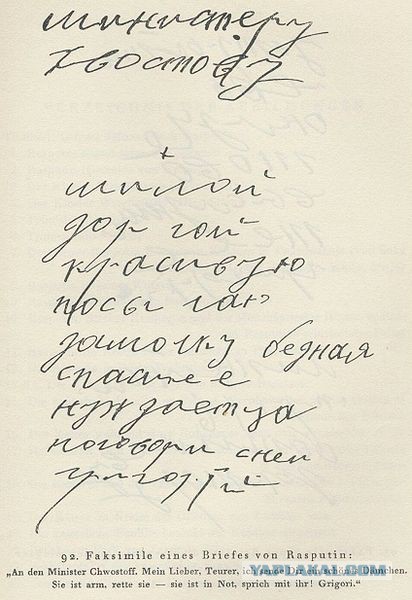 министеру
хвостову
милой
дорогой
красивую
посылаю
дамочку бедная
спаси ее
нуждаетца
поговори с ней
григорий
92. Faksimile eines Briefes von Rasputin:
„An den Minister Chwostoff. Mein Lieber, Teurer, ich sende Dir ein schönes Dämchen.
Sie ist arm, rette sie — sie ist in Not, sprich mit ihr! Grigori.“
YAPLAKAL.COM